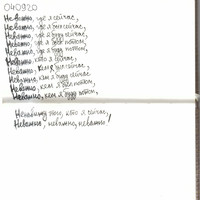 040920
Неважно, где я сейчас,
Неважно, где я был сейчас,
Неважно, где я буду сейчас,
Неважно, где я был потом,
Неважно, где я буду потом,
Неважно, кто я сейчас,
Неважно, кем я был сейчас,
Неважно, кем я буду сейчас,
Неважно, кем я был потом,
Неважно, кем я буду потом,
того, кто я сейчас,
Неважно, неважно, неважно!